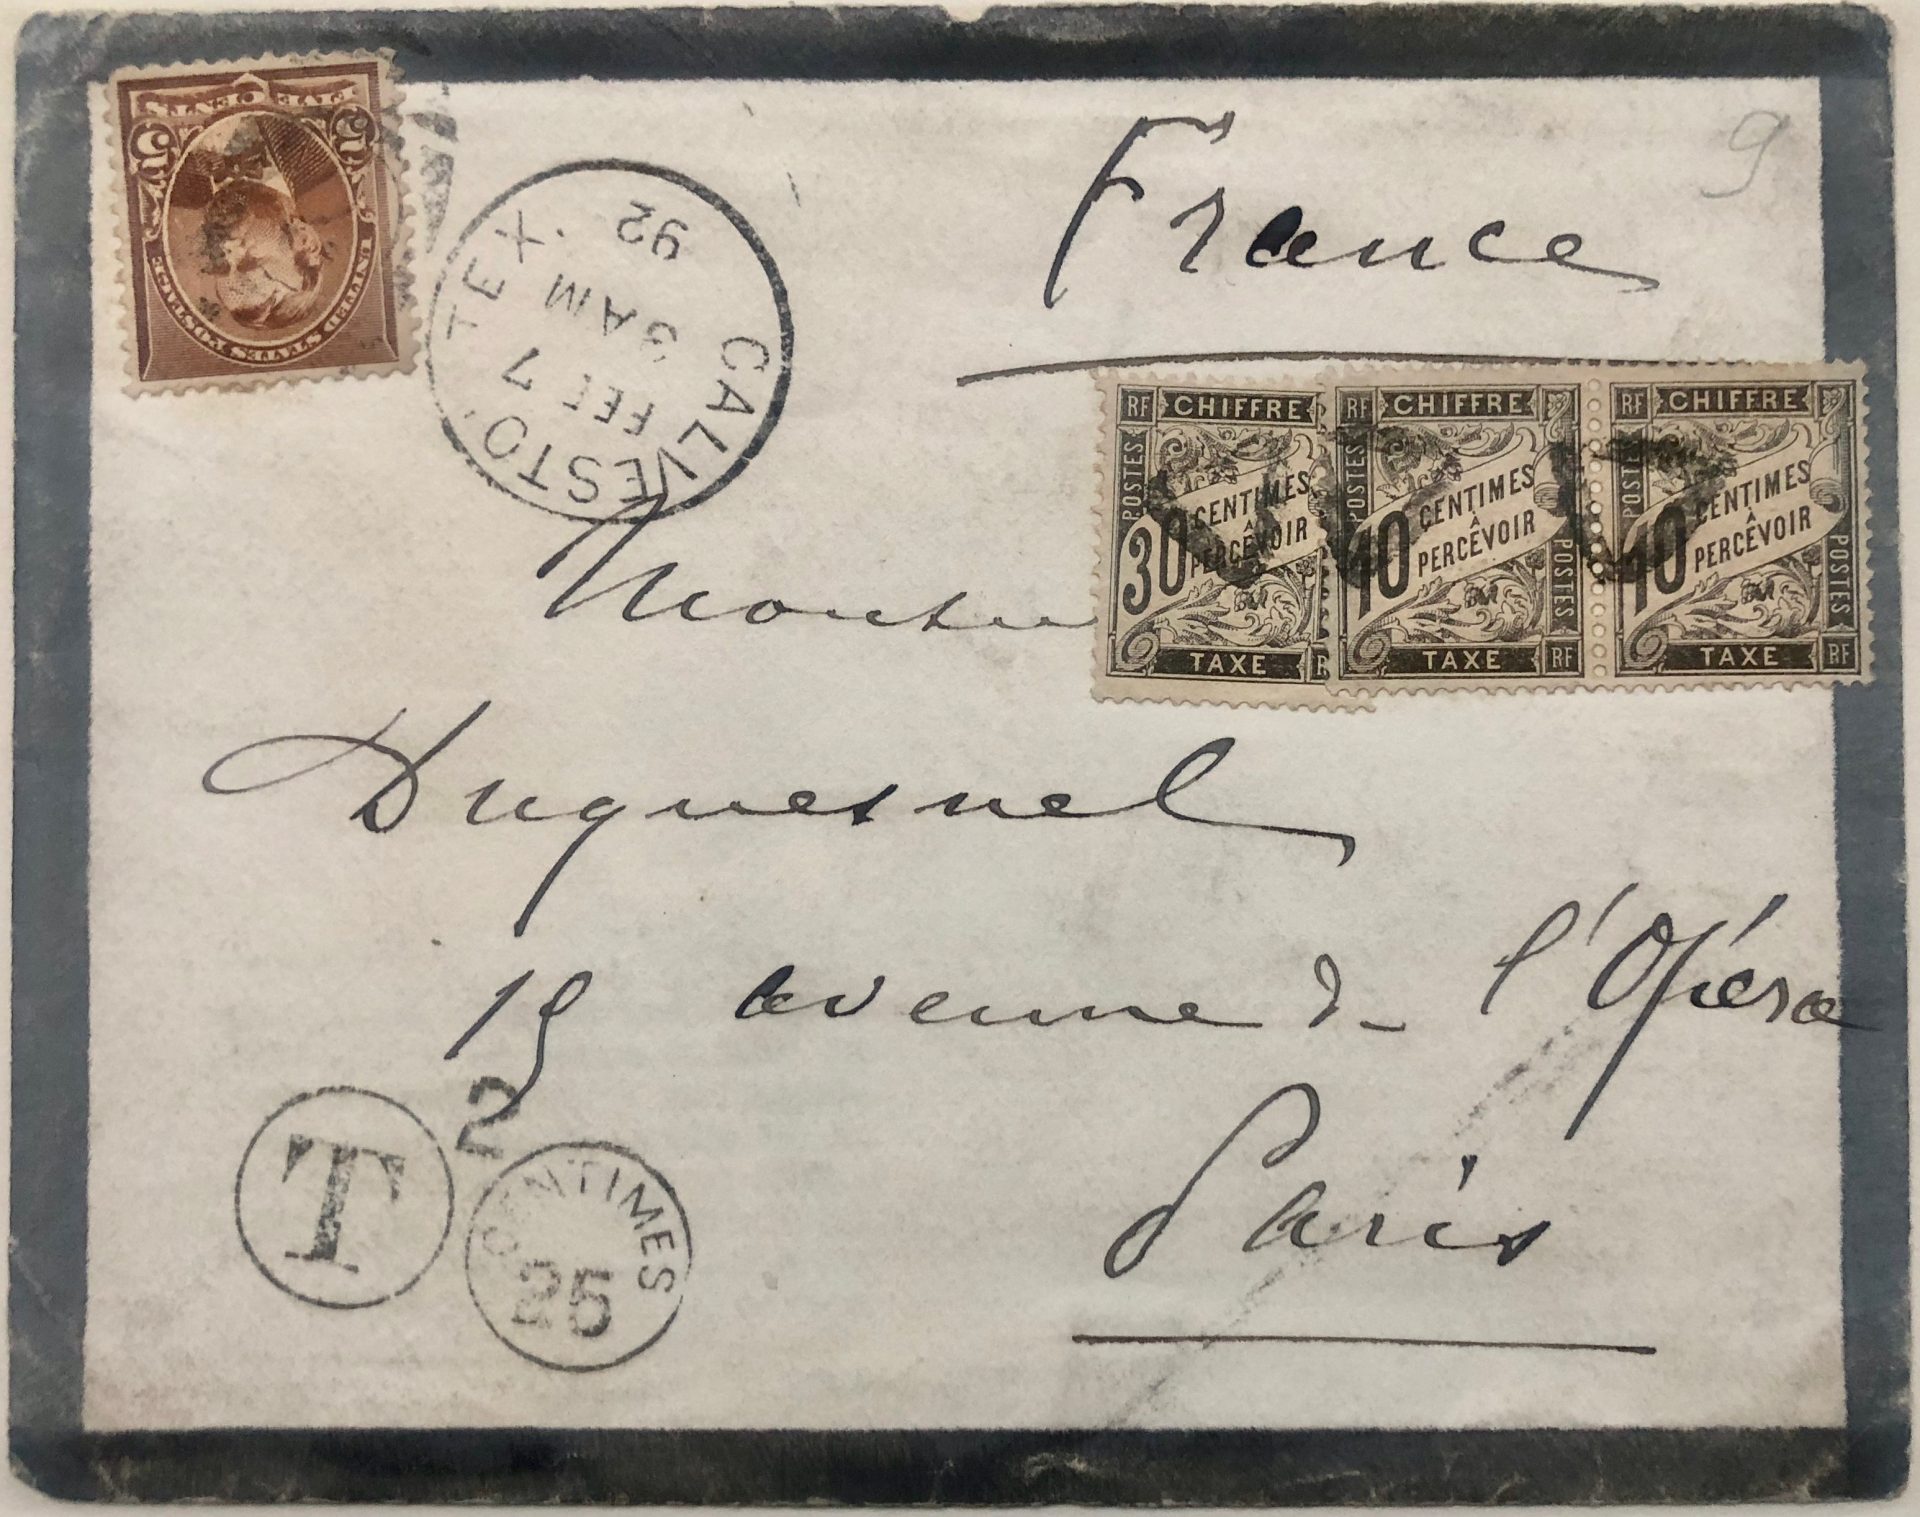 FIVE CENTS
5 5
UNITED STATES POSTAGE
GALVESTO TEX.
FEB 7
3 AM
92
France
9
RF CHIFFRE
POSTES
30 CENTIMES
À
PERCEVOIR
TAXE
RF CHIFFRE
POSTES
10 CENTIMES
À
PERCEVOIR
POSTES
TAXE RF
RF CHIFFRE
POSTES
10 CENTIMES
À
PERCEVOIR
POSTES
TAXE RF
Duquesnel
19 avenue de l'Opéra
Paris
T
2
CENTIMES
25